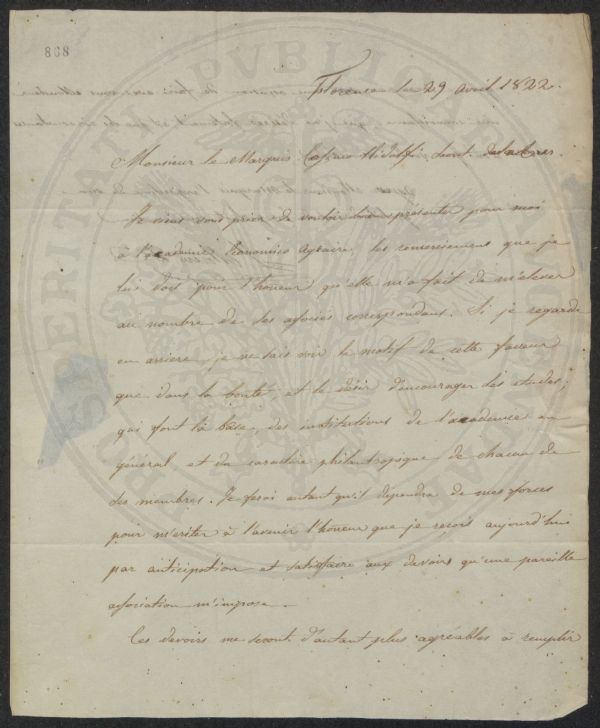 868
PROSPERITATI PVBLICAE AVGENDAE
Florence le 29 avril 1822.
Monsieur le Marquis Cosimo Ridolfi
Je viens vous prier de vouloir bien présenter pour moi
à l'academie Economico Agraire, les remerciemens que je
lui dois pour l'honeur qu'elle m'a fait de m'elever
au nombre de ses associés correspondans. Si je regarde
en arriere je ne sais voir le motif de cette faveur
que dans la bonté, et le désir d'encourager les etudes;
qui font la base des institutions de l'academie en
général et du caractère philantropique de chacun de
ses membres. Je ferai autant qu'il dépendra de mes forces
pour mériter à l'avenir l'honeur que je reçois aujourd'hui
par anticipation et satisfaire aux devoirs qu'une pareille
association m'impose.
Ces devoirs me seront d'autant plus agréables à remplir